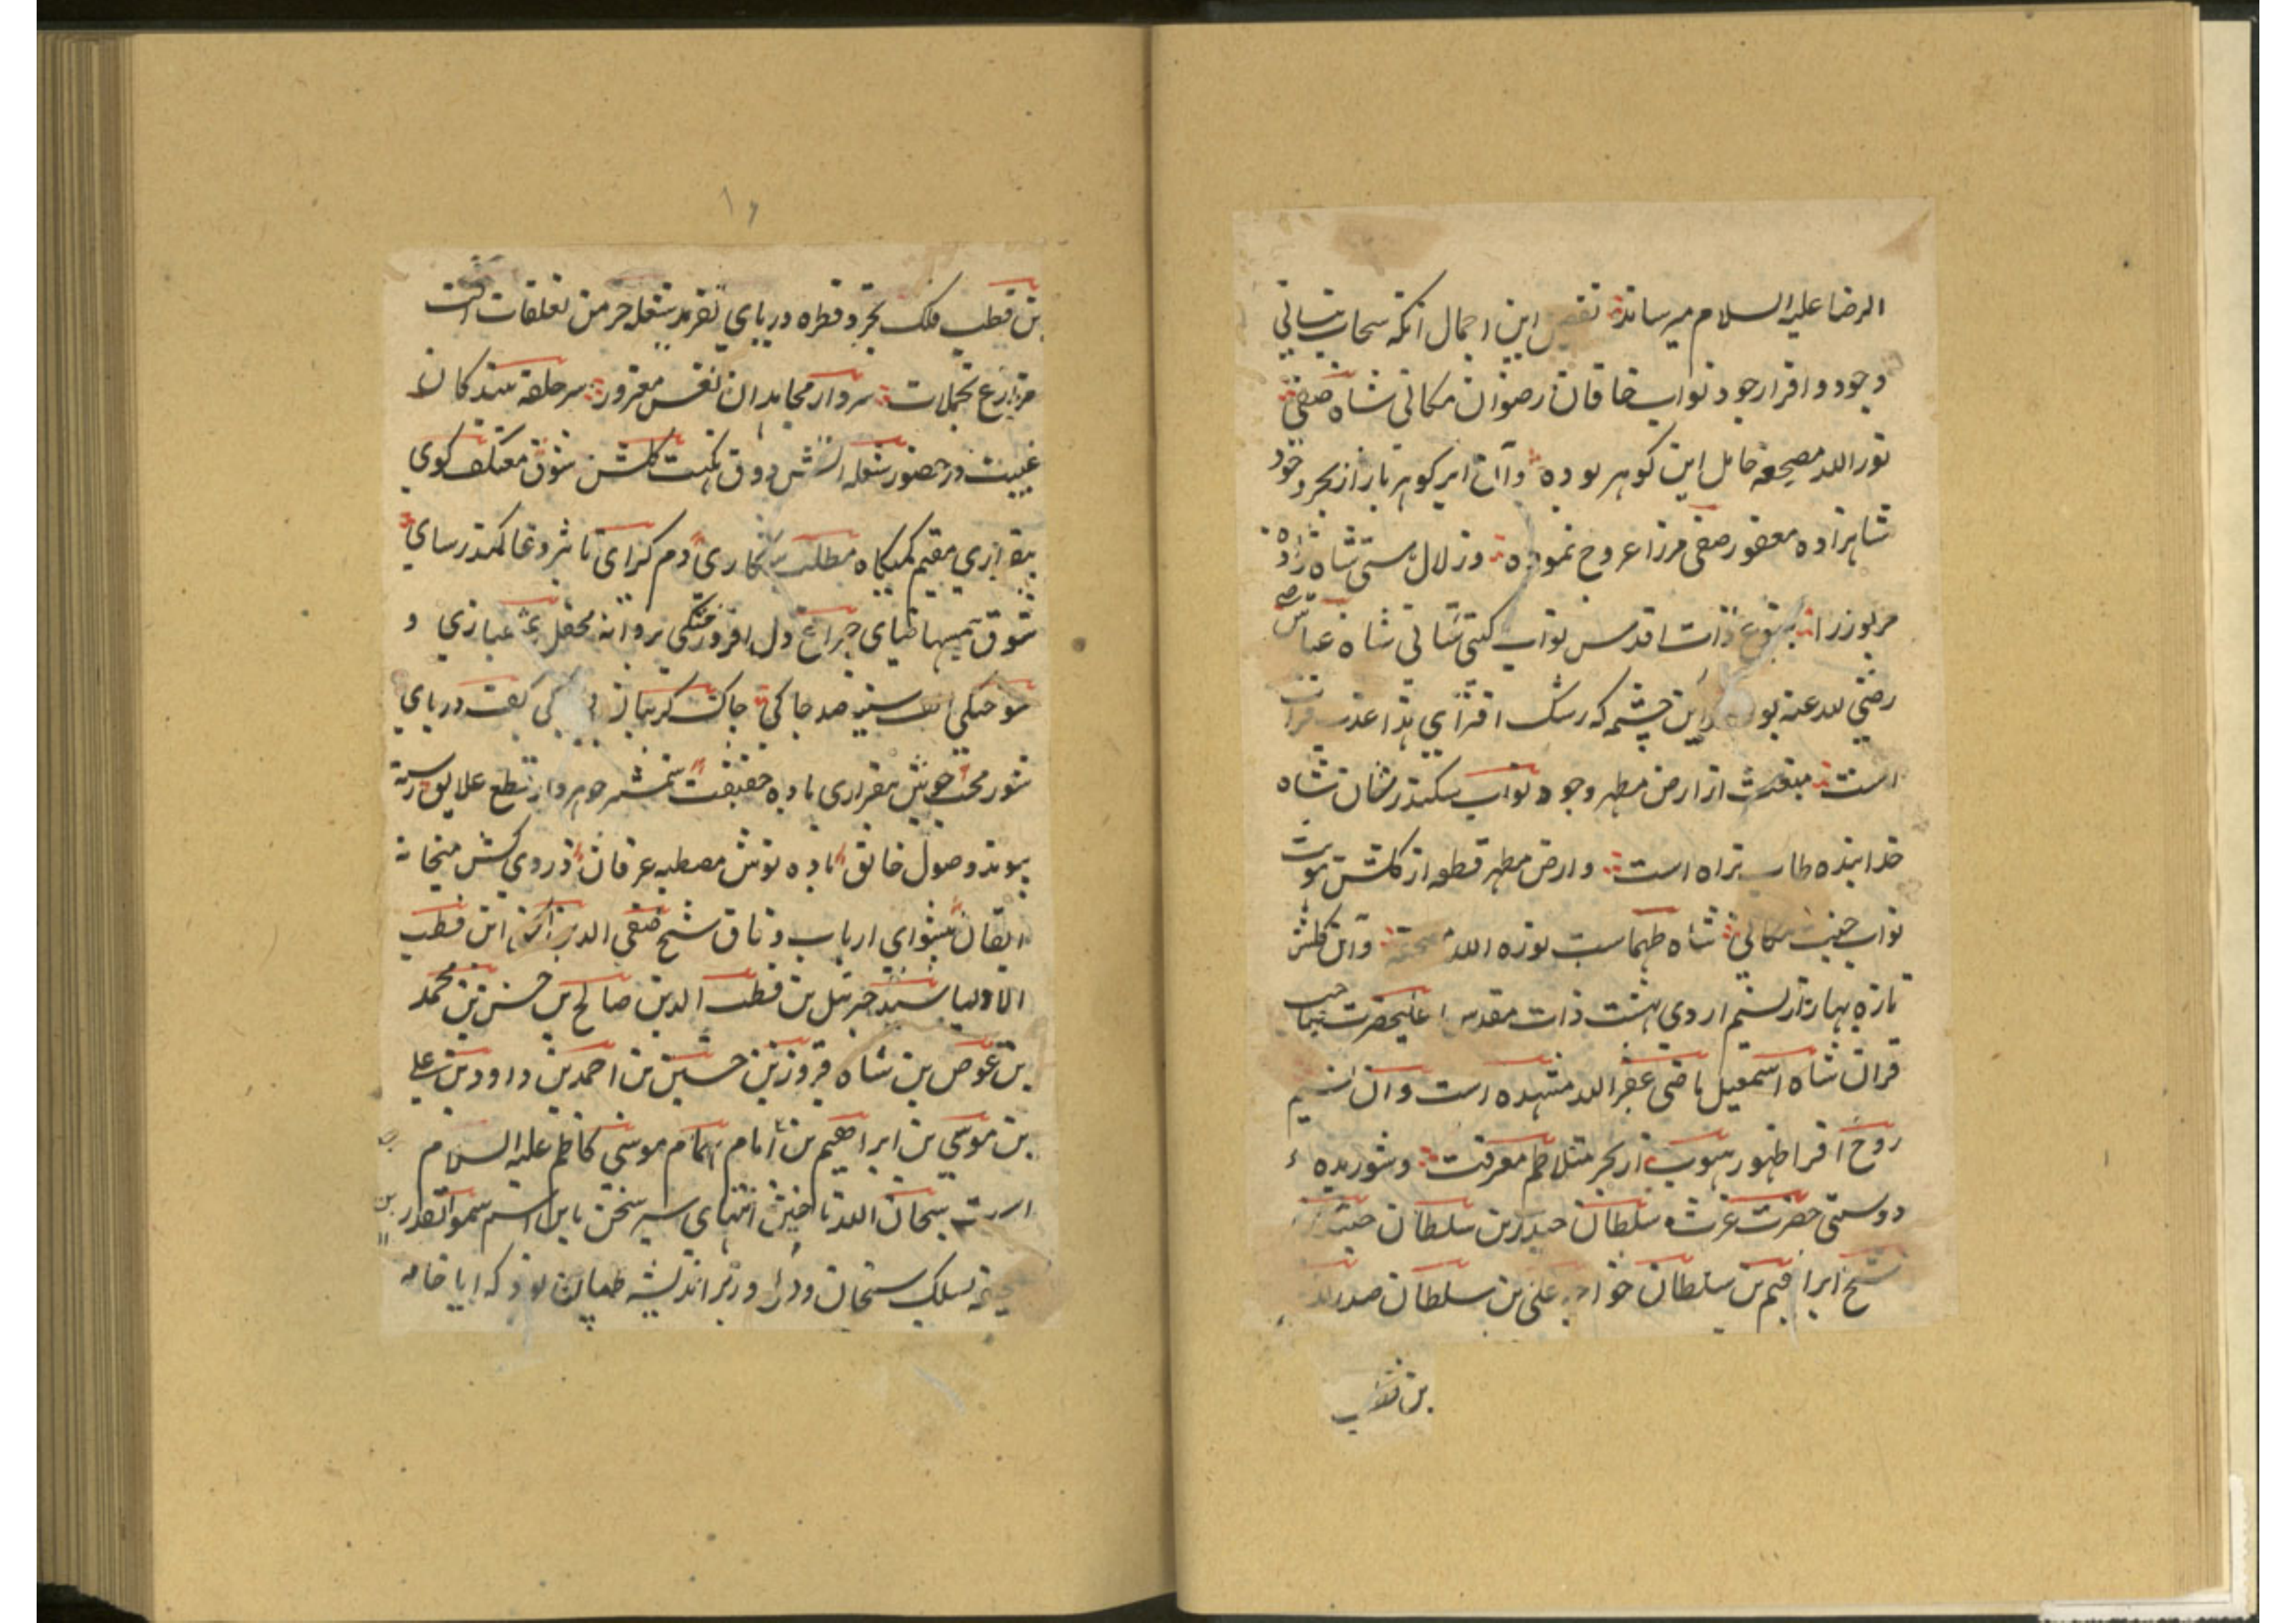 الرضا علیه السلام میرساند تفصیل این اجمال آنکه سحاب نیسانی
وجود و افرار جود نواب خاقان رضوان مکانی شاه صفی
نور الله مضجعه حامل این گوهر بوده و آن ابر گوهر بار از بحر وجود
شاهزاده مغفور صفی مرزا عروج نموده و زلال هستی شاه زاده
مزبور زاده ذات اقدس نواب گیتی ستانی شاه عباس
رضی الله عنه بوده و این چشمه که رشک افزای هذا عذب فرات
است منبعث از ارض مطهر وجود نواب سکندر شان شاه
خدا بنده طاب ثراه است و ارض مطهر قطعه از گلشن هویت
نواب جنت مکانی شاه طهماسب نوره الله مضجعه و آن گلشن
تازه بهار از نسیم اردی بهشت ذات مقدس اعلیحضرت صاحب
قران شاه اسمعیل ماضی غفر الله مشهده است و آن نسیم
روح افزا ظهور هبوب از بحر متلاطم معرفت و شوریده
دوستی حضرت عزت سلطان حیدر بن سلطان جنید بن
شیخ ابراهیم بن سلطان خواجه علی بن سلطان صدر الدین
بن قطب
۱۶
بن قطب فلک تجرد و قطره دریای تفرید شعله خرمن تعلقات
مزارع تجملات سردار مجاهدان نفس مغرور سر حلقه بندگان
غیبت در حضور شعله آتش ذوق نکهت گلشن شوق معتکف کوی
بیقراری مقیم کمینگاه مطلب شکاری دم گرای تاثیر دعا کمند رسای
شوق چراغ دل افروختگی پروانه محفل عشقبازی و
سوختگی الف سینه صد چاکی چاک گریبان بی کف دریای
شور محبت جوش بیقراری باده حقیقت شمشیر جوهردار قطع علایق رشته
پیوند وصول خالق باده نوش مصطبه عرفان دردی کش میخانه
ایقان پیشوای ارباب وفاق شیخ صفی الدین اسحق ابن قطب
الاولیا سید جبرئیل بن قطب الدین صالح بن حسن بن محمد
بن عوض بن شاه فیروز بن حسین بن احمد بن داود بن علی
بن موسی بن ابراهیم بن امام همام موسی کاظم علیه السلام
است سبحان الله تا خیر انتهای سیر سخن باین اسم سمو القدر
تسلک سخنان و در اندیشه که ایا خامه